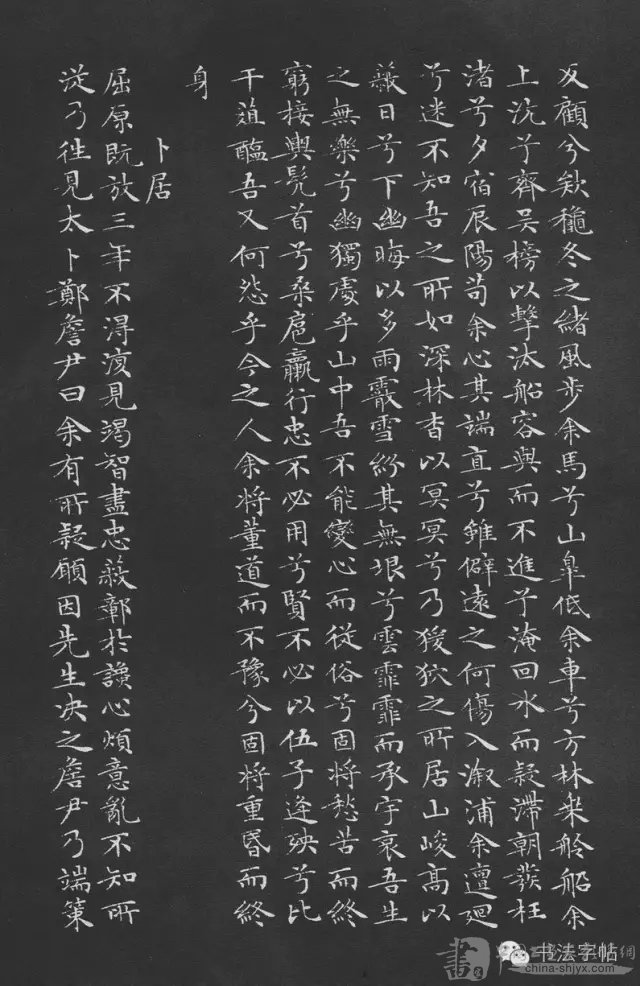 反顧兮欸穐冬之緒風步余馬兮山皐低余車兮方林椉舲船余
上沅兮齊吳榜以擊汰船容與而不進兮淹回水而疑滯朝發枉
渚兮夕宿辰陽苟余心其端直兮雖僻遠之何傷入溆浦余邅廻
兮迷不知吾之所如深林杳以冥冥兮乃猨狖之所居山峻高以
蔽日兮下幽晦以多雨霰雪紛其無垠兮雲霏霏而承宇哀吾生
之無樂兮幽獨處乎山中吾不能變心而從俗兮固將愁苦而終
窮接輿髡首兮桑扈臝行忠不必用兮賢不必以伍子逢殃兮比
干菹醢吾又何怨乎今之人余將董道而不豫兮固將重昏而終
身
卜居
屈原既放三年不得復見竭智盡忠蔽鄣於讒心煩意亂不知所
從乃往見太卜鄭詹尹曰余有所疑願因先生决之詹尹乃端策
书法字帖
china-shjyx.com